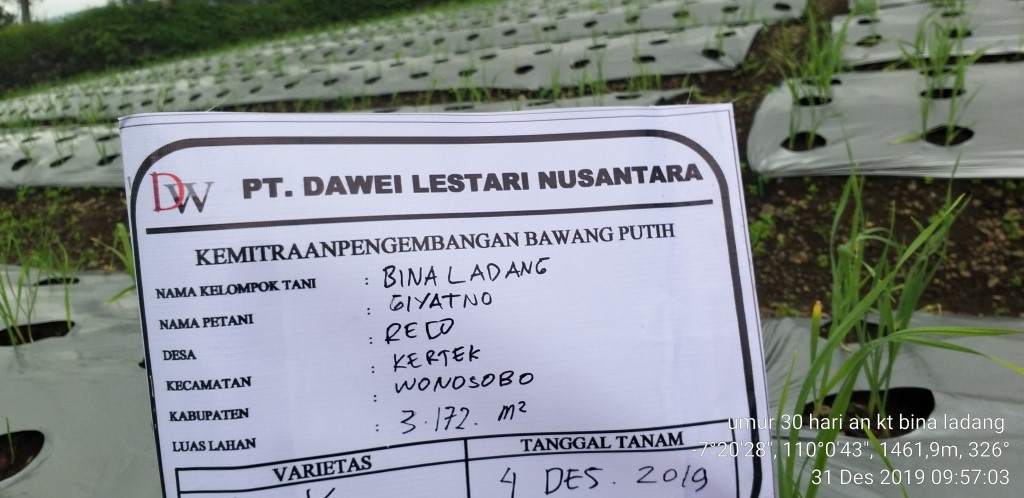 DW PT. DAWEI LESTARI NUSANTARA
KEMITRAANPENGEMBANGAN BAWANG PUTIH
NAMA KELOMPOK TANI : BINA LADANG
NAMA PETANI : GIYATNO
DESA : RECO
KECAMATAN : KERTEK
KABUPATEN : WONOSOBO
LUAS LAHAN : 3.172. m²
VARIETAS TANGGAL TANAM
4 DES. 2019
umur 30 hari an kt bina ladang
-7°20'28", 110°0'43", 1461,9m, 326°
31 Des 2019 09:57:03